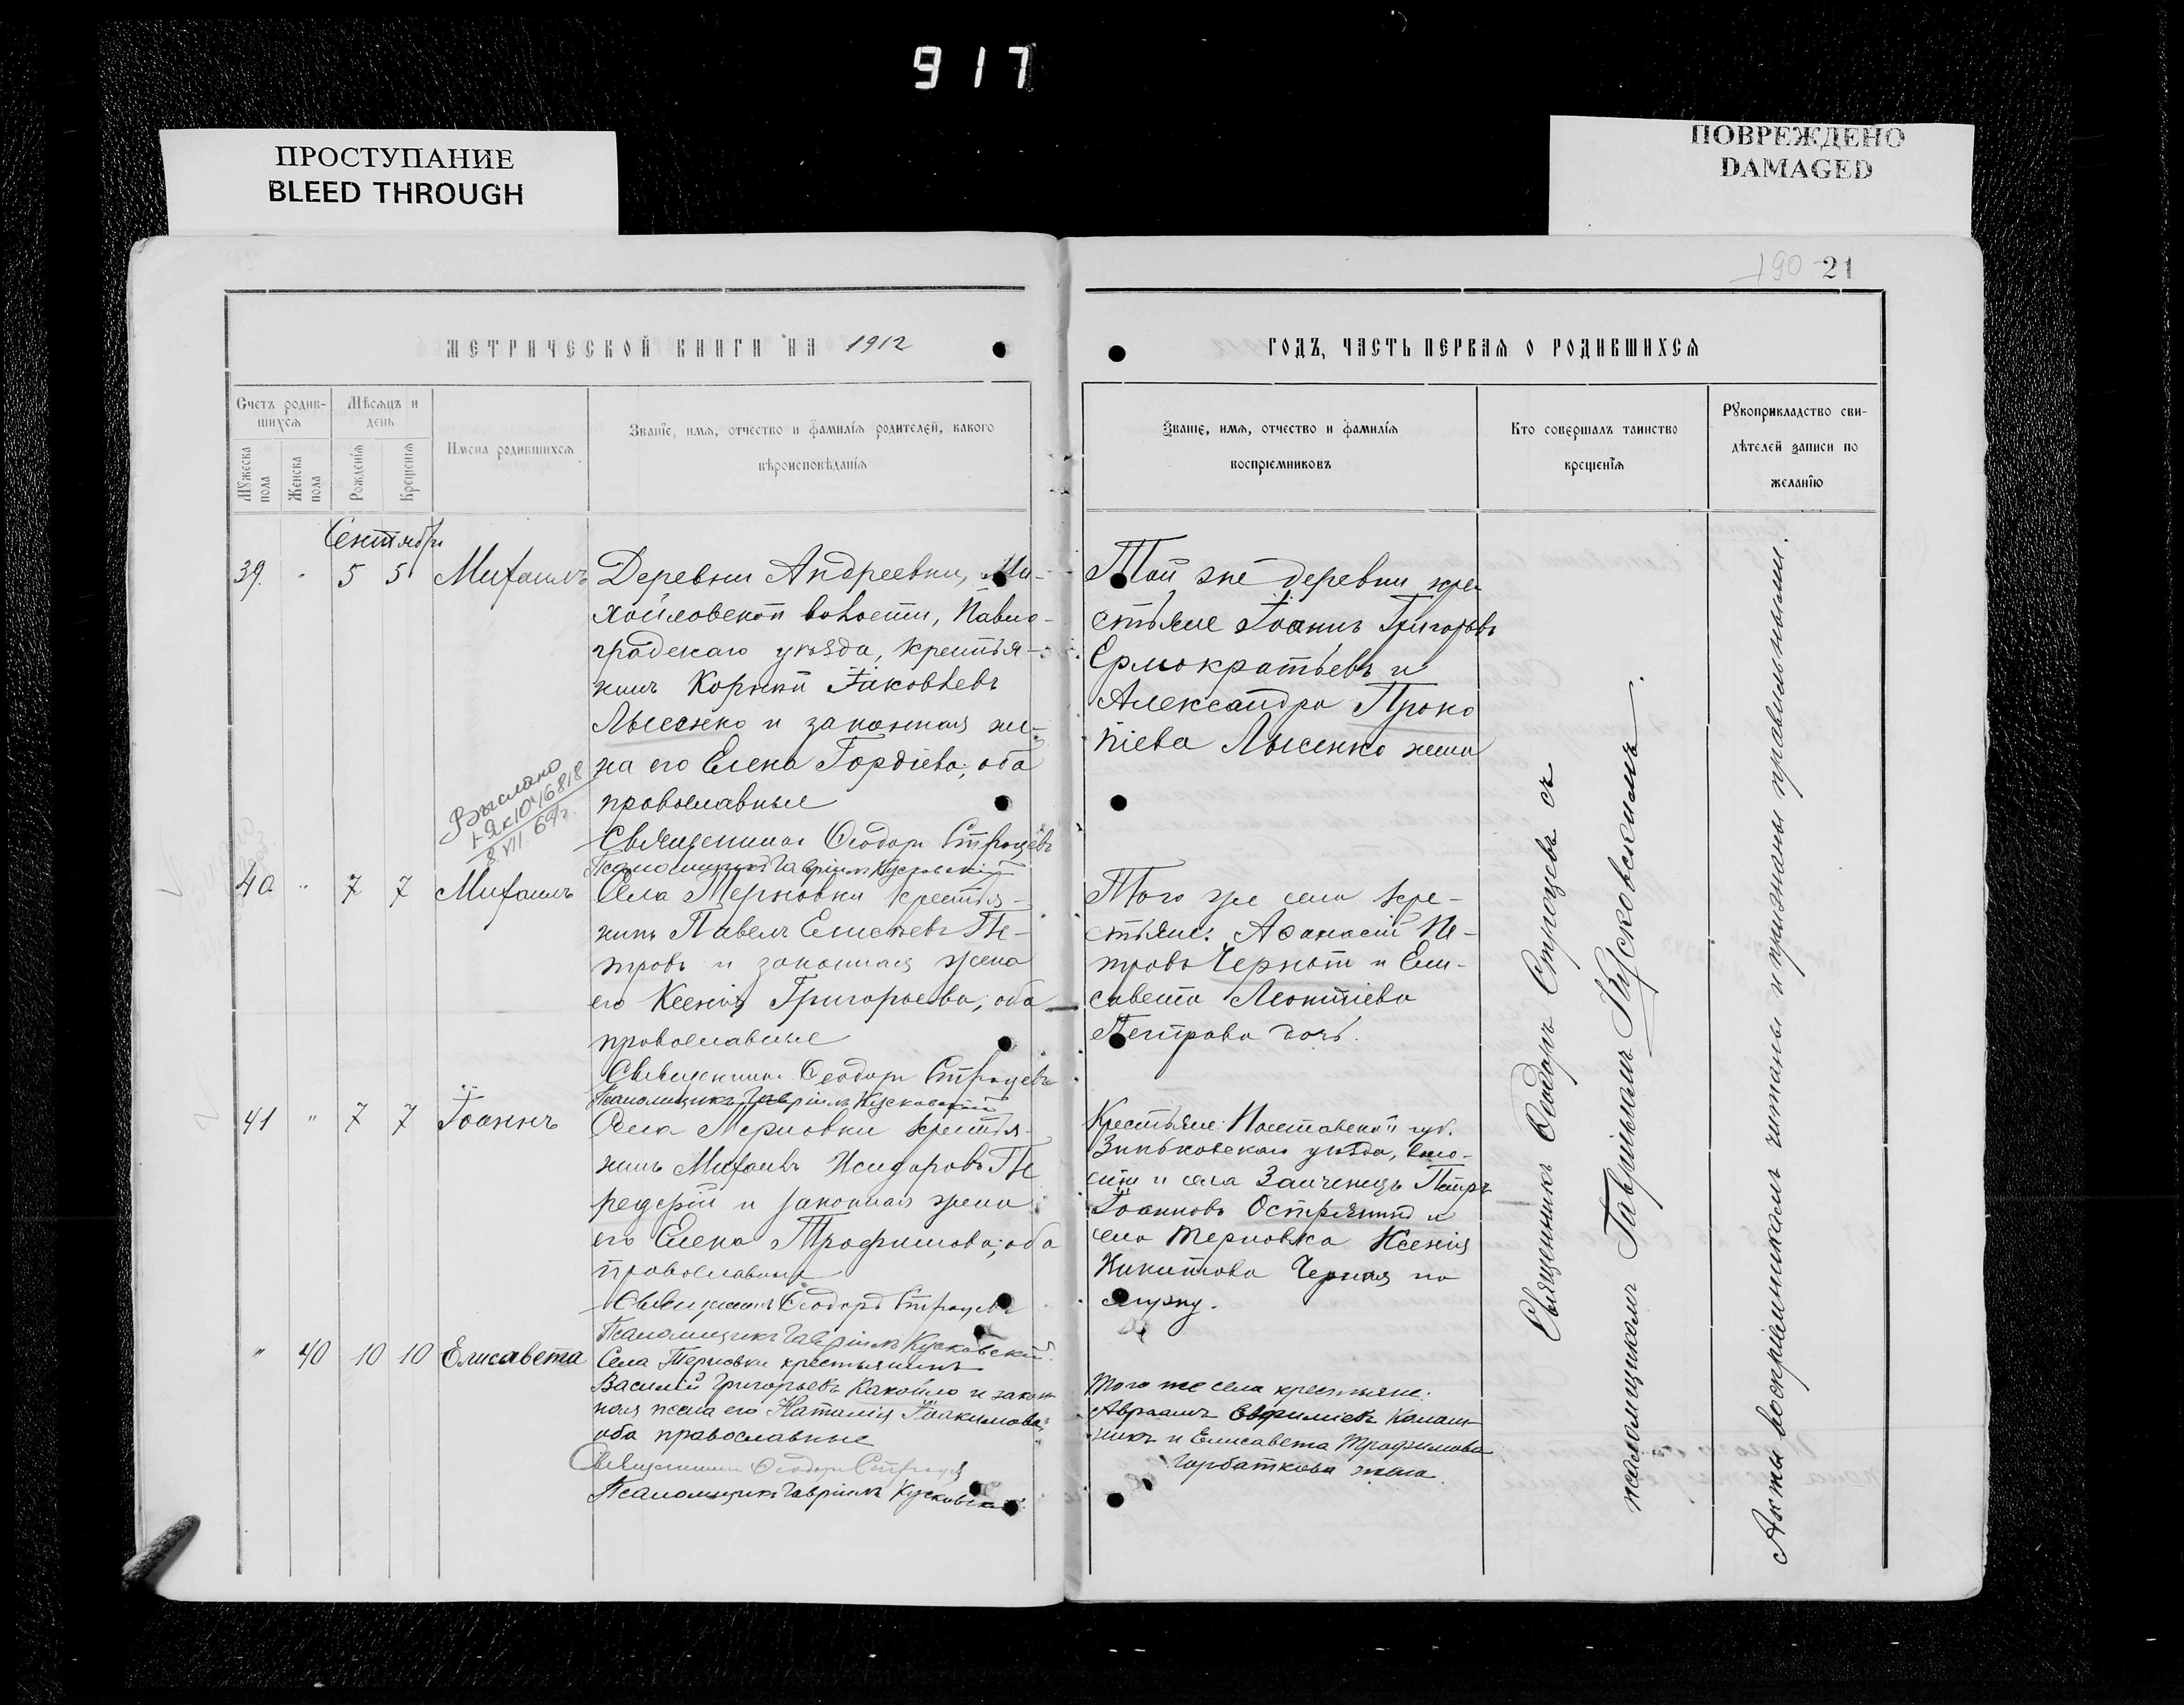 917
ПРОСТУПАНИЕ
BLEED THROUGH
ПОВРЕЖДЕНО
DAMAGED
190 21
МЕТРИЧЕСКОЙ КНИГИ НА 1912
ГОДЪ, ЧАСТЬ ПЕРВАЯ О РОДИВШИХСЯ
Счетъ родив-
шихся
Мѣсяцъ и
день
Мужеска
пола
Женска
пола
Рожденія
Крещенія
Имена родившихся
Званіе, имя, отчество и фамилія родителей, какого
вѣроисповѣданія
Званіе, имя, отчество и фамилія
воспріемниковъ
Кто совершалъ таинство
крещенія
Рукоприкладство сви-
дѣтелей записи по
желанію
Сентябрь
39. " 5 5 Михаилъ
Деревни Андреевки, Ми-
хайловской волости, Павло-
градскаго уѣзда, крестья-
нинъ Корнилій Іаковлевъ
Лысенко и законная же-
на его Елена Гордіева, оба
православные
Священникъ Ѳеодоръ Строцевъ
Псаломщикъ Гавріилъ Кусковскій
Той же деревни кре
стьяне Іоаннъ Григорьевъ
Ермократьевъ и
Александра Проко
піева Лысенко жена
Выслано
I-ЯК 1046818
8.VII.69г.
40 " 7 7 Михаилъ
Села Терновки крестья-
нинъ Павелъ Елисеевъ Пе-
тровъ и законная жена
его Ксенія Григорьева, оба
православные
Священникъ Ѳеодоръ Строцевъ
Псаломщикъ Гавріилъ Кусковскій
Того же села кре-
стьяне: Аѳанасій Пе-
тровъ Черный и Ели-
савета Леонтіева
Петрова дочь.
41 " 7 7 Іоаннъ
Села Терновки крестья-
нинъ Михаилъ Исидоровъ Пе
редерій и законная жена
его Елена Трофимова, оба
православные
Священникъ Ѳеодоръ Строцевъ
Псаломщикъ Гавріилъ Кусковскій.
Крестьяне: Полтавской губ.
Зиньковскаго уѣзда, воло-
сти и села Заиченецъ Петръ
Іоанновъ Остряний и
села Терновка Ксенія
Никитова Черная по
мужу.
" 40 10 10 Елисавета
Села Терновки крестьянинъ
Василій Григорьевъ Какойло и закон
ная жена его Наталія Іоакимова,
оба православные
Священникъ Ѳеодоръ Строцевъ
Псаломщикъ Гавріилъ Кусковскій.
Того же села крестьяне:
Авраамъ Евфиміевъ Калаш-
никъ и Елисавета Трофимова
Горбаткова жена.
Священникъ Ѳеодоръ Строцевъ съ
псаломщикомъ Гавріиломъ Кусковскимъ.
Акты воспріемникамъ читаны и признаны правильными.